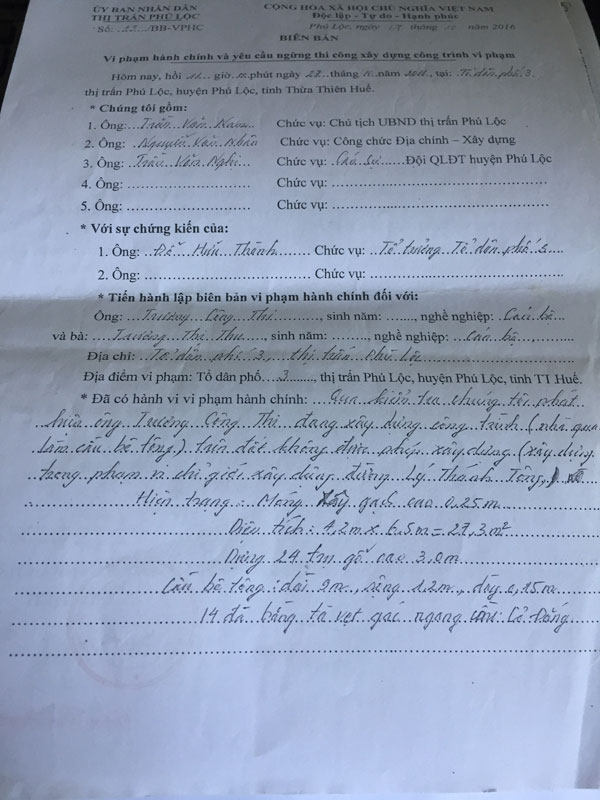 ỦY BAN NHÂN DÂN CỘNG HÒA XÃ HỘI CHỦ NGHĨA VIỆT NAM
THỊ TRẤN PHÚ LỘC Độc lập - Tự do - Hạnh phúc
Số: /BB-VPHC Phú Lộc, ngày tháng năm 2016
BIÊN BẢN
Vi phạm hành chính và yêu cầu ngừng thi công xây dựng công trình vi phạm
Hôm nay, hồi giờ phút ngày tháng năm tại: Tổ dân phố 3
thị trấn Phú Lộc, huyện Phú Lộc, tỉnh Thừa Thiên Huế.
* Chúng tôi gồm:
1. Ông: Trần Văn Chức vụ: Chủ tịch UBND thị trấn Phú Lộc
2. Ông: Nguyễn Văn Nhân Chức vụ: Công chức Địa chính – Xây dựng
3. Ông: Trần Văn Nghi Chức vụ: Đội QLĐT huyện Phú Lộc
4. Ông: Chức vụ:
5. Ông: Chức vụ:
* Với sự chứng kiến của:
1. Ông: Hữu Thành Chức vụ: Tổ trưởng Tổ dân phố 3
2. Ông: Chức vụ:
* Tiến hành lập biên bản vi phạm hành chính đối với:
Ông: Trương Công Thi, sinh năm: ......, nghề nghiệp: Cán bộ
và bà: Trương Thị Thu, sinh năm: ........, nghề nghiệp: Cán bộ
Địa chỉ: Tổ dân phố 3, thị trấn Phú Lộc
Địa điểm vi phạm: Tổ dân phố 3, thị trấn Phú Lộc, huyện Phú Lộc, tỉnh TT Huế.
* Đã có hành vi vi phạm hành chính: Qua kiểm tra chúng tôi phát
hiện ông Trương Công Thi đang xây dựng công trình (nhà quán
làm cầu bê tông) trên đất không được phép xây dựng (xây dựng
trong phạm vi chỉ giới xây dựng đường Lý Thánh Tông)
Hiện trạng: Móng xây gạch cao 0,25m
Diện tích: 4,2m x 6,5m = 27,3m²
Dựng 24 trụ gỗ cao 3,0m
Cầu bê tông: dài 9m, rộng 1,2m, dày 0,15m
14 đà bằng tà vẹt gác ngang